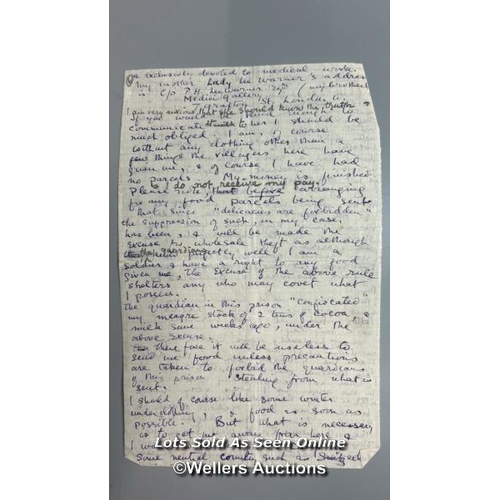 exclusively devoted to medical work.
My mother Lady Lee Warner's address
is c/o P.H. Lee Warner Esqre (my brother)
Medici Gallery
7 Grafton St. London W.
I am very anxious that she should know the truth &
if you would be kind enough to
communicate this to her I should be
much obliged. I am, of course
without any clothing other than a
few things the villagers here have
given me, & of course I have had
no parcels. My money is finished
& I do not receive my pay.
Please note that before arranging
for any food parcels being sent
that since "delicacies are forbidden"
the suppression of such, in my case
has been, & will be made the
excuse for wholesale theft as although
the guardians know perfectly well I am a
soldier & have a right to any food
given me, the excuse of the above rule
shelters any who may covet what
I possess.
The guardian in this prison "confiscated"
my meagre stock of 2 tins of cocoa, &
milk some weeks ago, under the
above excuse.
Therefore it will be useless to
send me food unless precautions
are taken to forbid the guardians
of this prison stealing from what is
sent.
I should of course like some winter
underclothing, & food as soon as
possible. But what is necessary
is to get me away from here &
some neutral country such as
Lots Sold As Seen Online
©Wellers Auctions